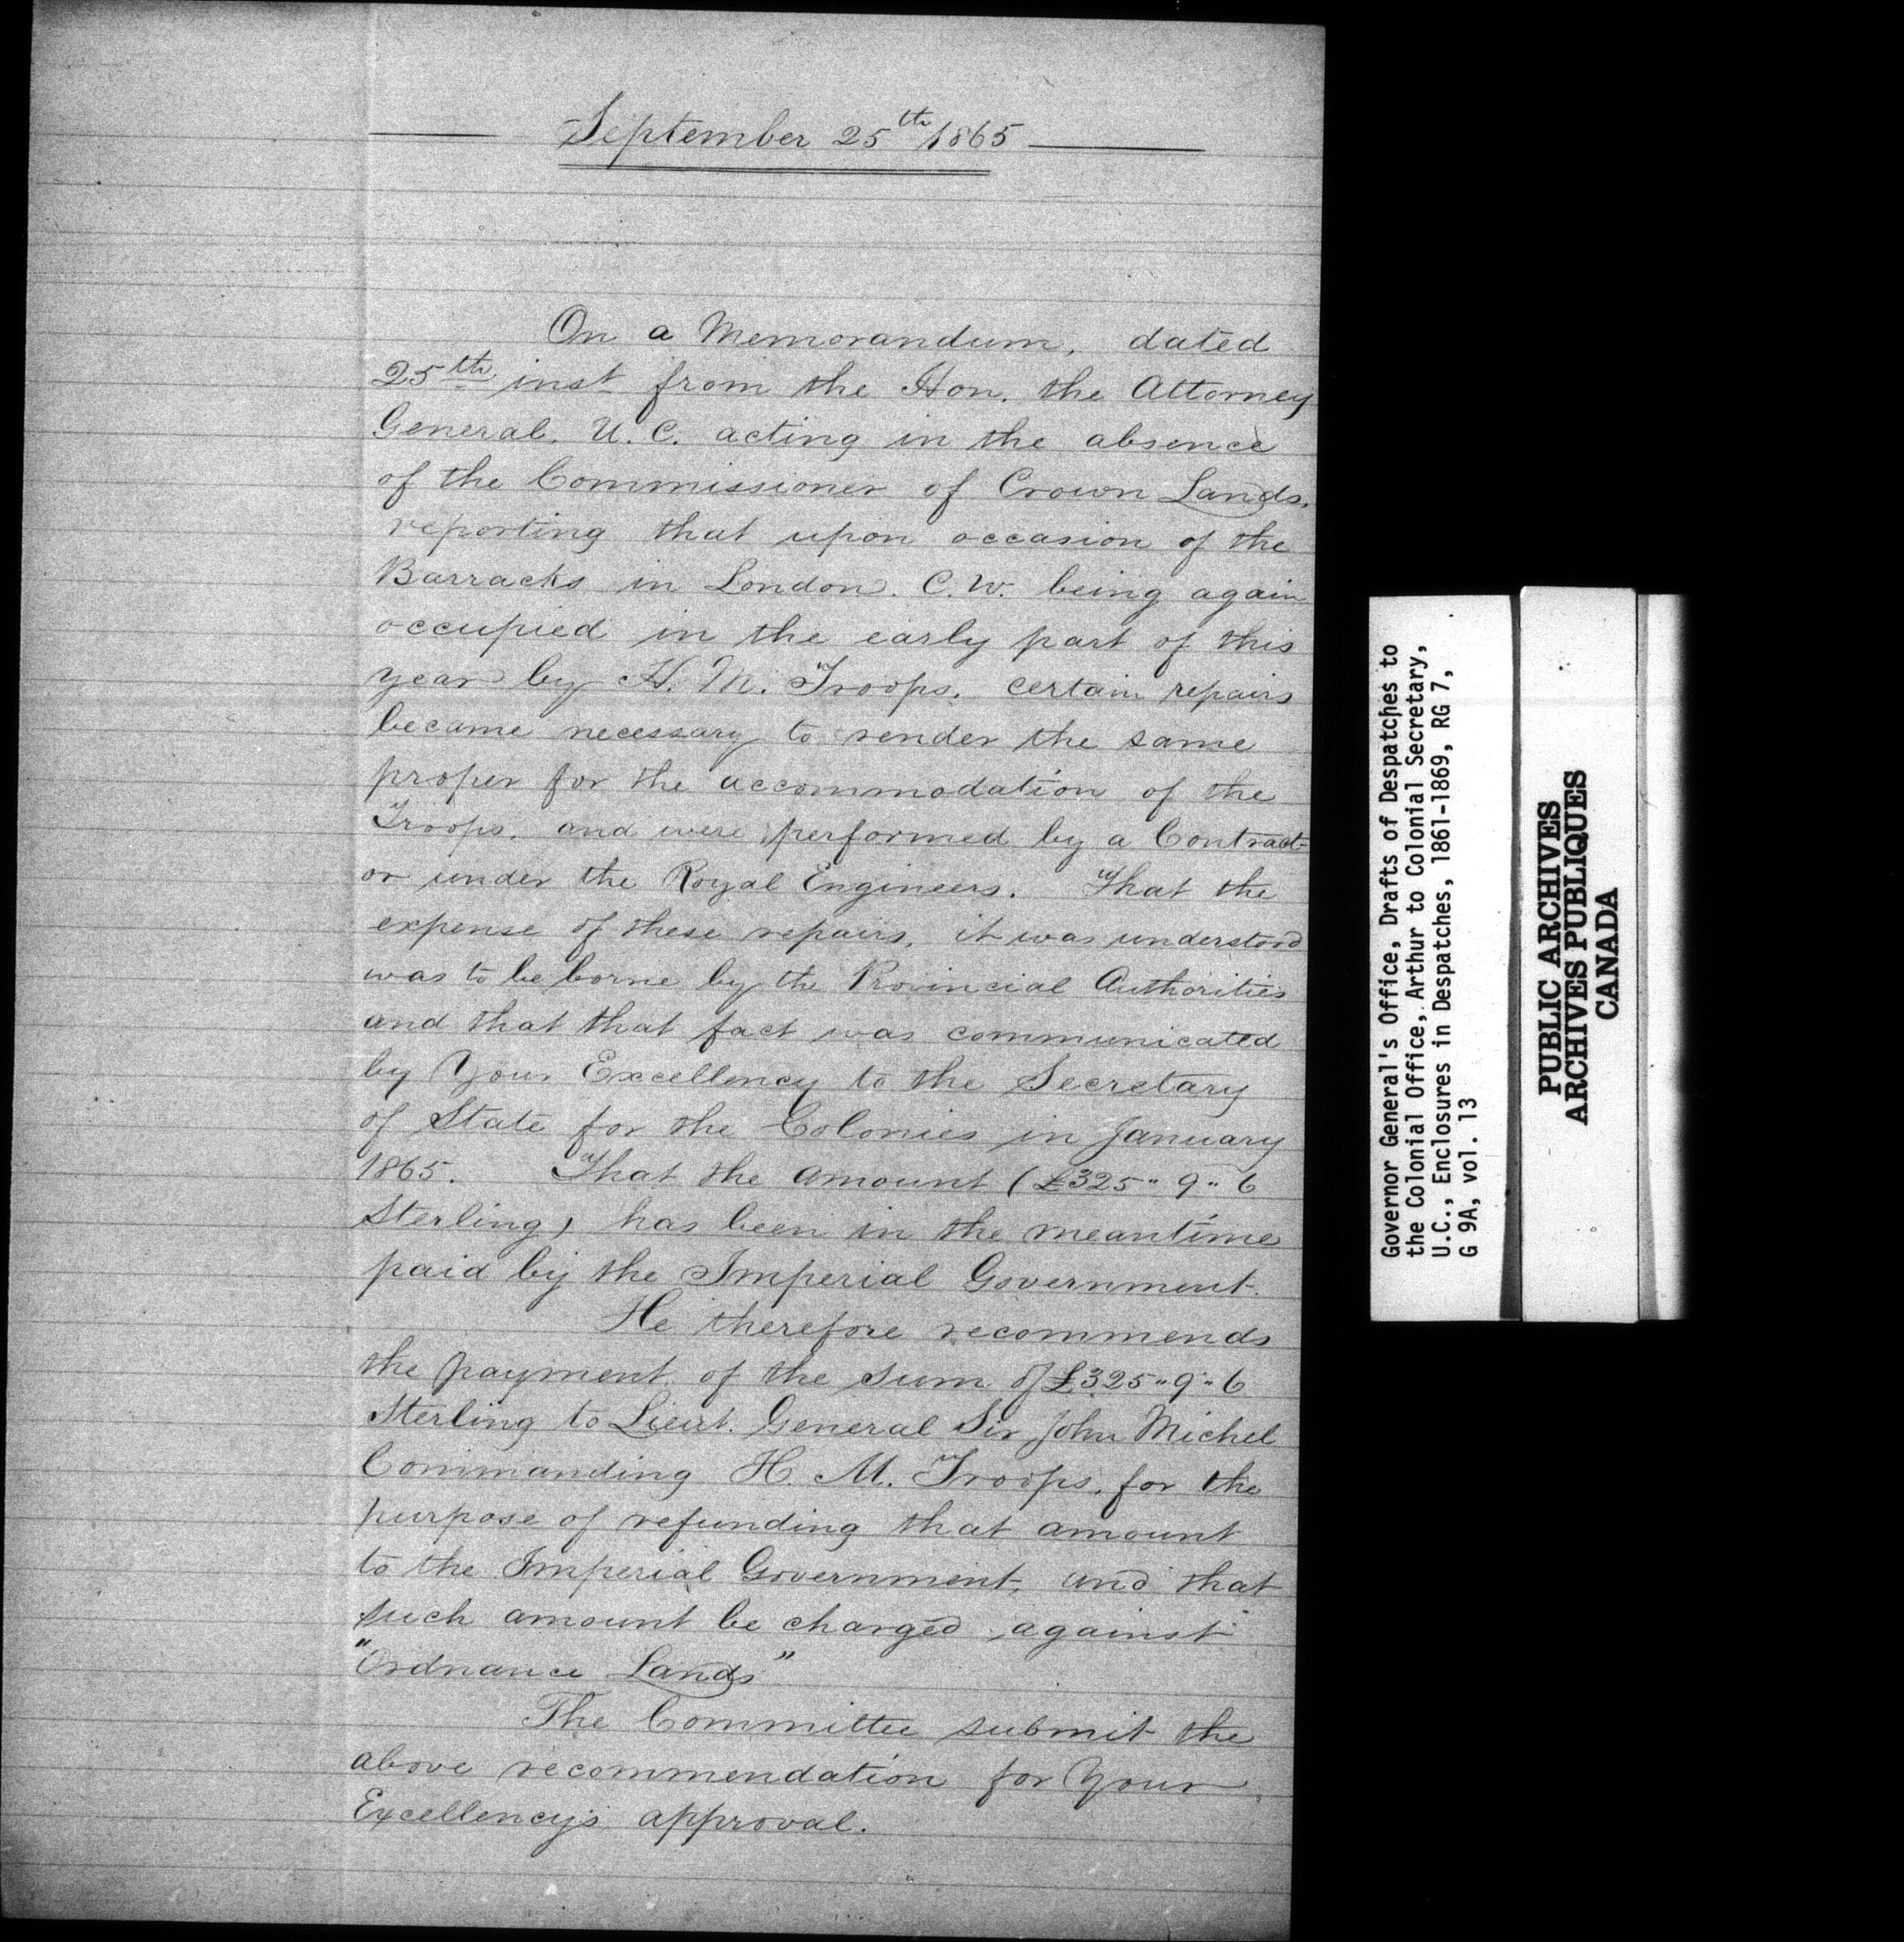 September 25th 1865
On a Memorandum, dated
25th inst from the Hon. the Attorney
General. U. C. acting in the absence
of the Commissioner of Crown Lands,
reporting that upon occasion of the
Barracks in London. C. W. being again
occupied in the early part of this
year by H. M. Troops. certain repairs
became necessary to render the same
proper for the accommodation of the
Troops. and were performed by a Contract-
or under the Royal Engineers. That the
expense of these repairs, it was understood
was to be borne by the Provincial Authorities
and that that fact was communicated
by Your Excellency to the Secretary
of State for the Colonies in January
1865. That the amount (£325 " 9 " 6
Sterling) has been in the meantime
paid by the Imperial Government.
He therefore recommends
the payment of the sum of £325 " 9 " 6
Sterling to Lieut. General Sir John Michel
Commanding H. M. Troops. for the
purpose of refunding that amount
to the Imperial Government, and that
such amount be charged against
"Ordnance Lands"
The Committee submit the
above recommendation for Your
Excellency's approval.
Governor General's Office, Drafts of Despatches to
the Colonial Office, Arthur to Colonial Secretary,
U.C., Enclosures in Despatches, 1861-1869, RG 7,
G 9A, vol. 13
PUBLIC ARCHIVES
ARCHIVES PUBLIQUES
CANADA